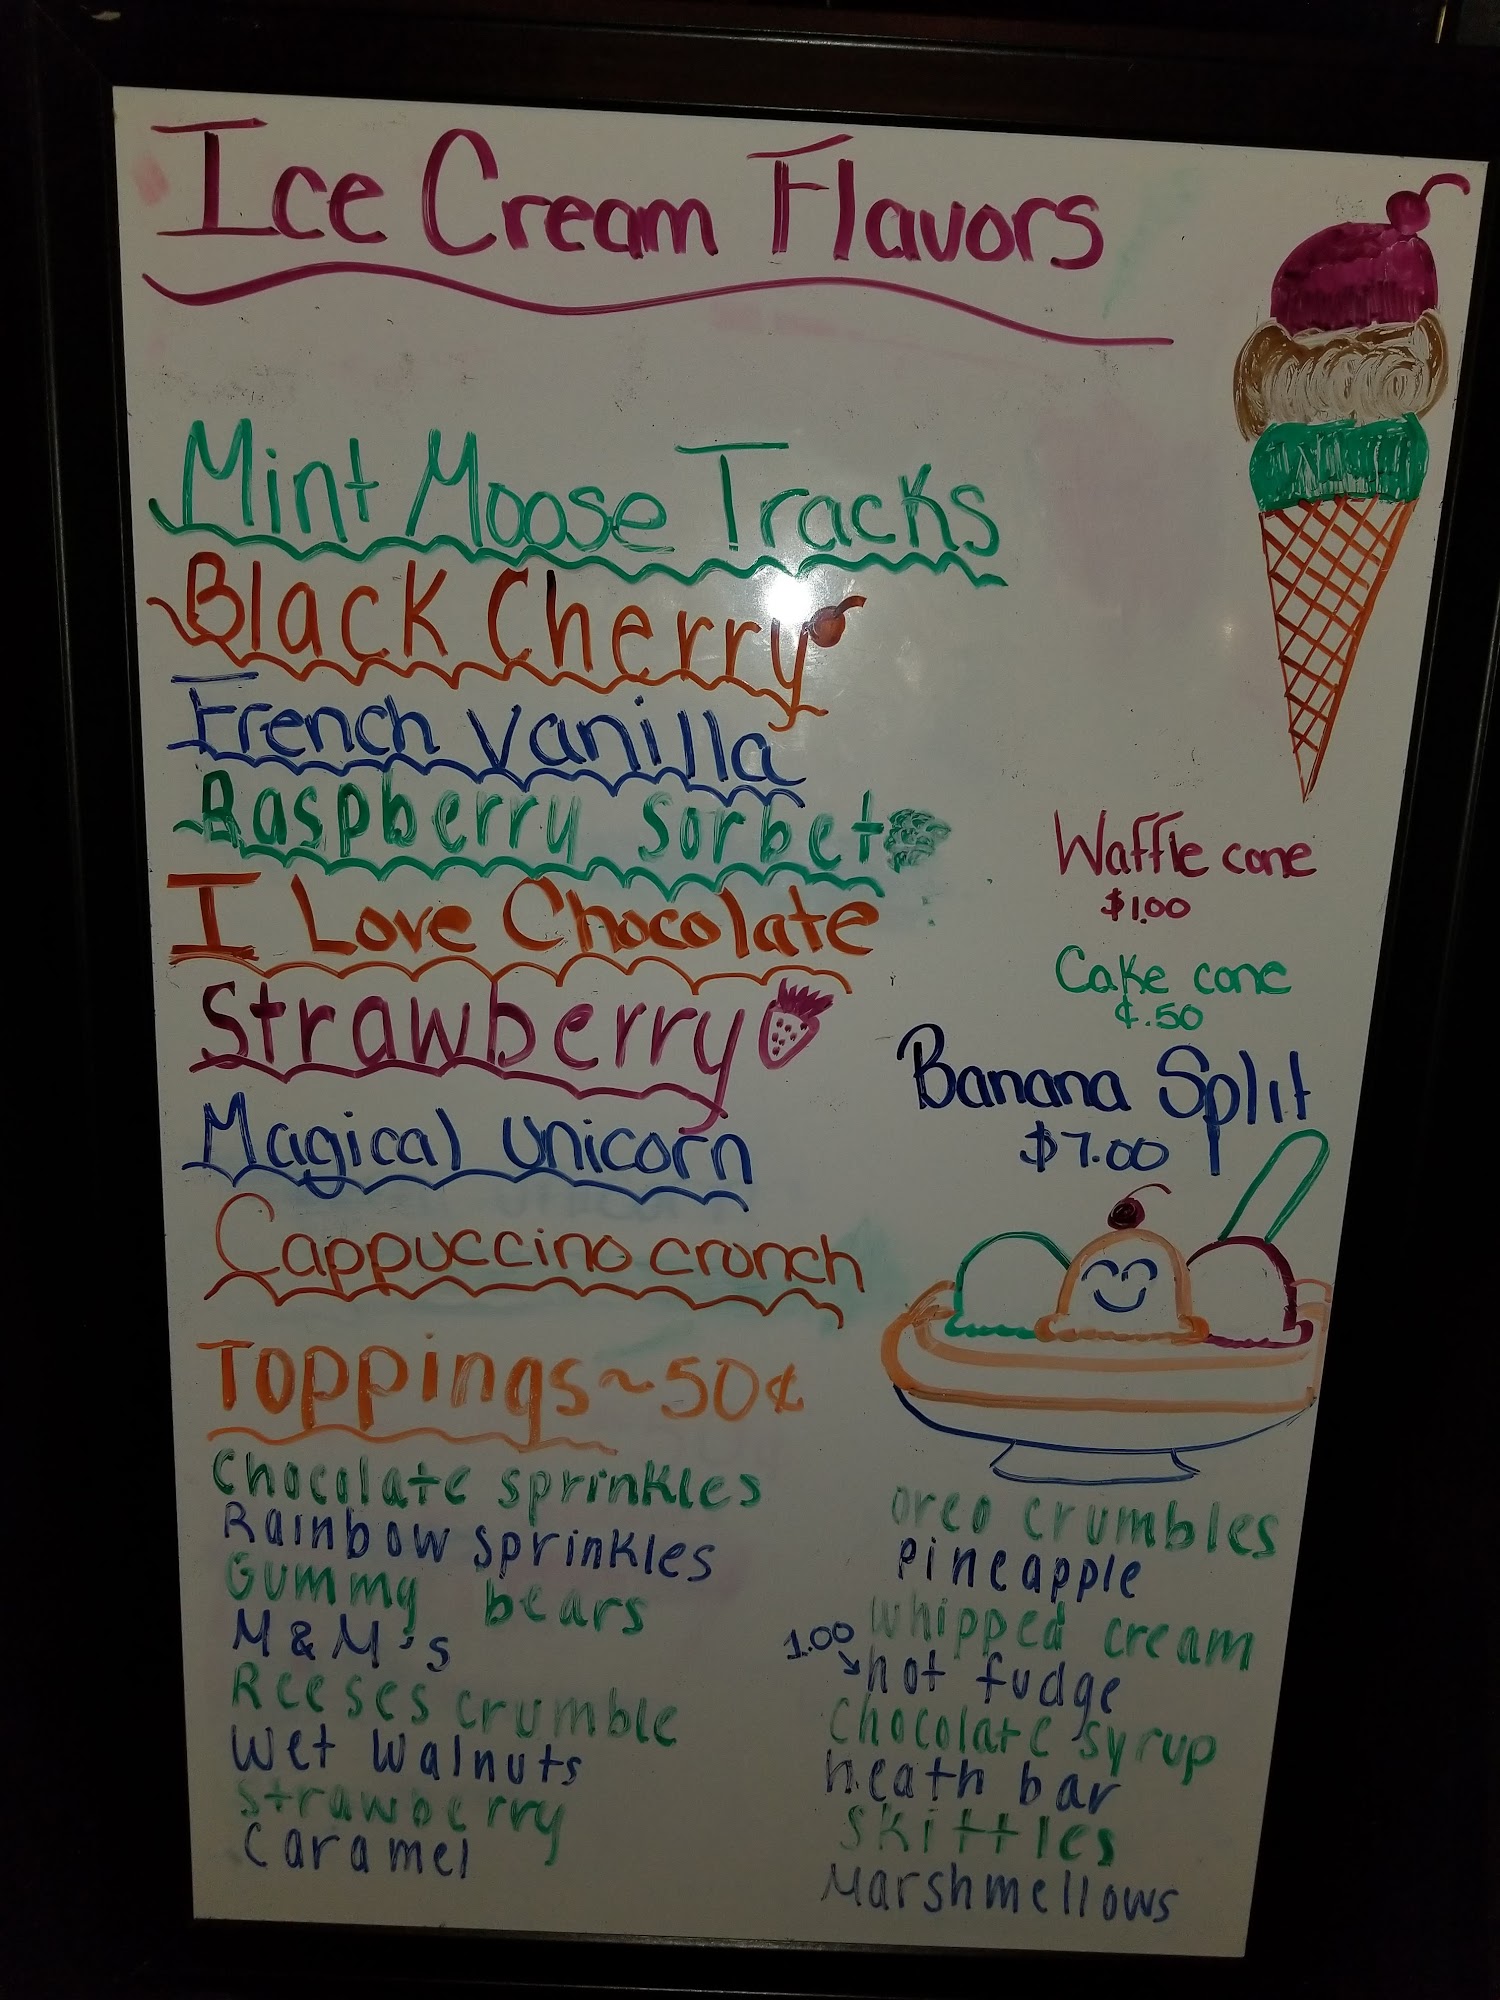 Ice Cream Flavors
Mint Moose Tracks
Black Cherry
French Vanilla
Raspberry Sorbet
I Love Chocolate
Strawberry
Magical Unicorn
Cappuccino crunch
Waffle cone
$1.00
Cake cone
¢.50
Banana Split
$7.00
Toppings~50¢
Chocolate sprinkles
Rainbow sprinkles
Gummy bears
M&M's
Reeses crumble
Wet Walnuts
Strawberry
Caramel
oreo crumbles
Pineapple
whipped cream
1.00
hot fudge
Chocolate syrup
heath bar
Skittles
Marshmellows